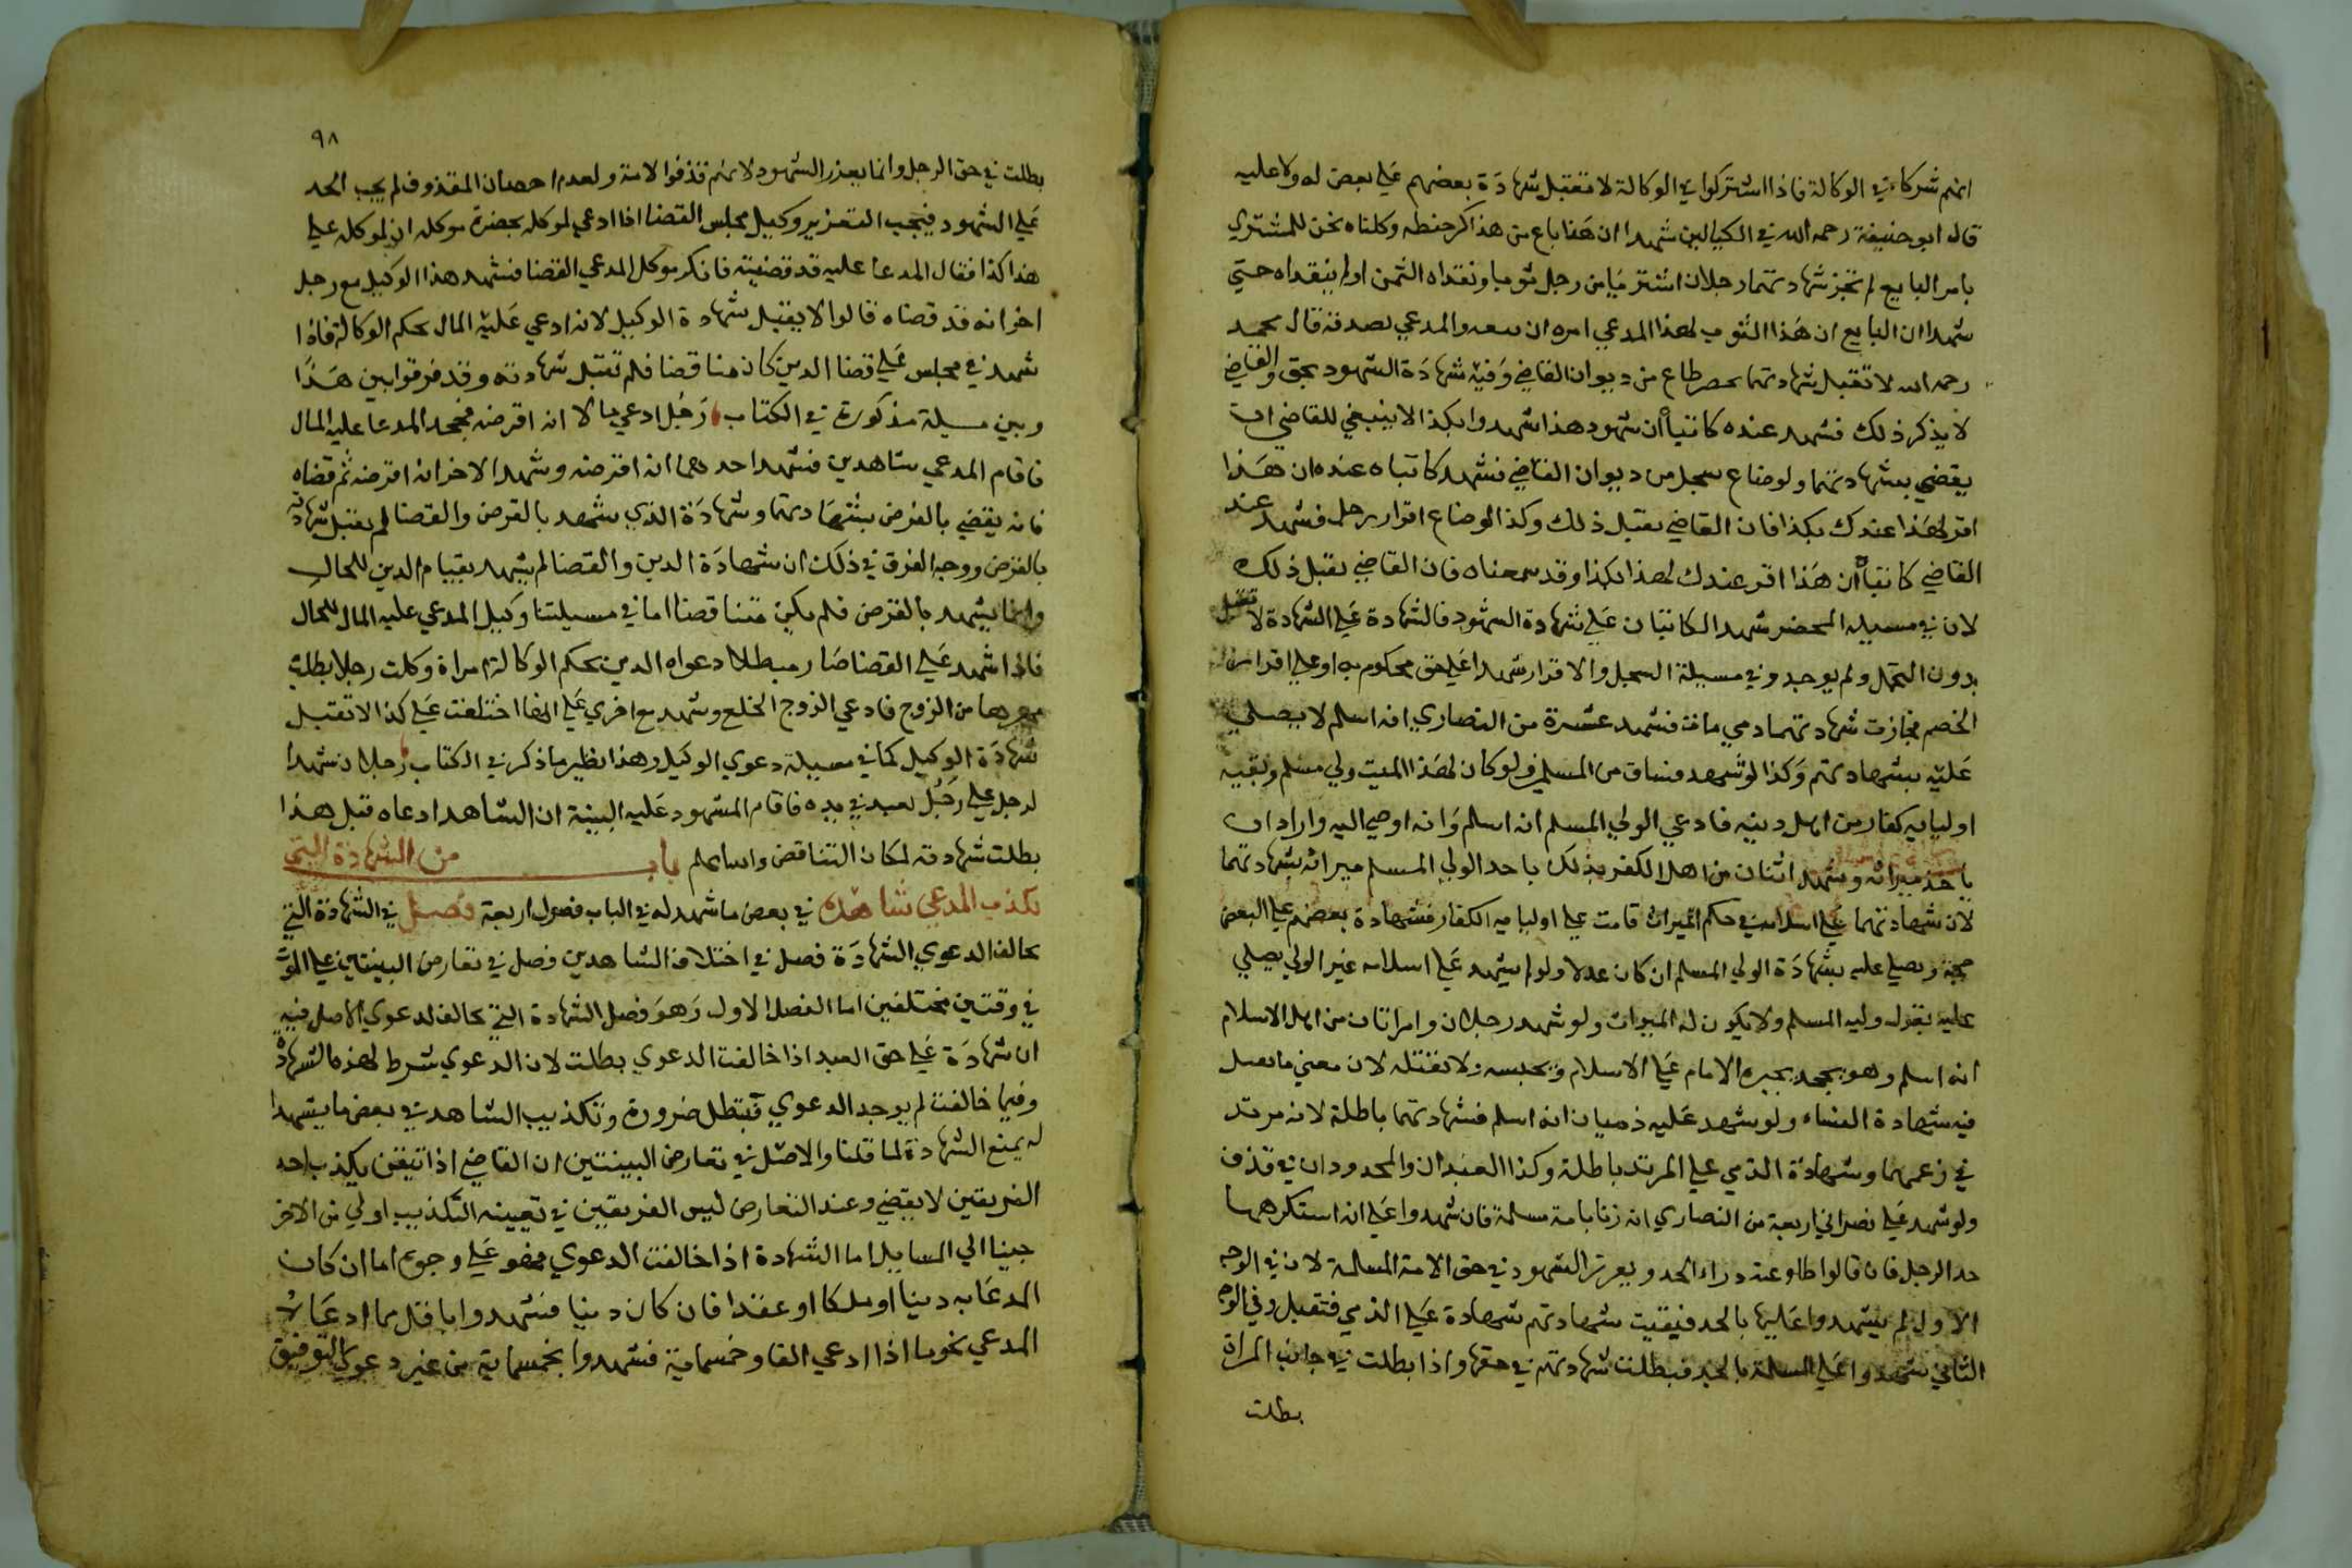 انهم شركاء في الوكالة فاذا اشتركوا في الوكالة لا تقبل شهادة بعضهم علي بعض له ولا عليه
قال ابو حنيفة رحمه الله في الكيالين شهدا ان هذا باع من هذا كر حنطه وكلناه نحن للمشتري
بامر البايع لم تجز شهادتهما رجلان اشتريا من رجل ثوبا ونقداه الثمن او لم ينقداه حتي
شهدا ان البايع ان هذا الثوب لهذا المدعي امره ان والمدعي يصدقه قال محمد
رحمه الله لا تقبل شهادتهما محضر ضاع من ديوان القاضي وفيه شهادة الشهود بحق والقاضي
لا يذكر ذلك فشهد عنده كاتباه ان شهود هذا شهدوا بكذا لا ينبغي للقاضي ان
يقضي بشهادتهما ولو ضاع سجل من ديوان القاضي فشهد كاتباه عنده ان هذا
اقر لهذا عندك بكذا فان القاضي يقبل ذلك وكذا لو ضاع اقرار رجل فشهد عند
القاضي كاتباه ان هذا اقر عندك لهذا بكذا وقد سمعناه فان القاضي يقبل ذلك
لان في مسيلة المحضر شهد الكاتبان علي شهادة الشهود فالشهادة علي الشهادة لا تقبل
بدون التحمل ولم يوجد وفي مسيلة السجل والاقرار شهدا علي حق محكوم به او علي اقرار من
الخصم فجازت شهادتهما ذمي مات فشهد عشرة من النصاري انه اسلم لا يصلي
عليه بشهادتهم وكذا لو شهد فساق من المسلمين ولو كان لهذا الميت ولي مسلم وبقية
اوليايه كفار من اهل دينه فادعي الولي المسلم انه اسلم وانه اوصي اليه واراد ان
ياخذ ميراثه وشهد اثنان من اهل الكفر بذلك ياخذ الولي المسلم ميراثه بشهادتهما
لان شهادتهما علي اسلامه في حكم الميراث قامت علي اوليايه الكفار فشهادة بعضهم علي البعض
حجة ويصلي عليه بشهادة الولي المسلم ان كان عدلا ولو لم يشهد علي اسلامه غير الولي يصلي
عليه بقول وليه المسلم ولا يكون له الميراث ولو شهد رجلان وامراتان من اهل الاسلام
انه اسلم وهو يجحد يجبره الامام علي الاسلام ويحبسه ولا تقتله لان معني ما تعمل
فيه شهادة النساء ولو شهد عليه ذميان انه اسلم فشهادتهما باطلة لانه مرتد
في زعمهما وشهادة الذمي علي المرتد باطلة وكذا العبدان والمحدودان في قذف
ولو شهد علي نصراني اربعة من النصاري انه زنا بامة مسلمة فان شهدوا علي انه استكرهها
حد الرجل فان قالوا طاوعته دراء الحد ويعزر الشهود في حق الامة المسلمة لان في الوجه
الاول لم يشهدوا عليها بالحد فبقيت شهادتهم شهادة علي الذمي فتقبل وفي الوجه
الثاني شهدوا علي المسلمة بالحد فبطلت شهادتهم في حقها واذا بطلت في جانب المراة
بطلت
٩٨
بطلت في حق الرجل وانما يعذر الشهود لانهم قذفوا الامة ولعدم احصان المقذوف لم يجب الحد
علي الشهود فيجب التعزير وكيل مجلس القضا اذا ادعي لموكله بحضرة موكله ان لموكله علي
هذا كذا فقال المدعا عليه قد قضيته فانكر موكل المدعي القضا فشهد هذا الوكيل مع رجل
اخر انه قد قضاه قالوا لا يقبل شهادة الوكيل لانه ادعي عليه المال بحكم الوكالة فاذا
شهد في مجلس علي قضا الدين كان مناقضا فلم تقبل شهادته وقد فرقوا بين هذا
وبين مسيلة مذكورة في الكتاب رجل ادعي مالا انه اقرضه فجحد المدعا عليه المال
فاقام المدعي شاهدين فشهد احدهما انه اقرضه وشهد الاخر انه اقرضه ثم قضاه
فانه يقضي بالقرض بشهادتهما وشهادة الذي شهد بالقرض والقضا لم يقبل شهادته
بالقرض ووجه الفرق في ذلك ان شهادة الدين والقضا لم يشهد بقيام الدين للحال
وانما يشهد بالقرض فلم يكن متناقضا اما في مسيلتنا وكيل المدعي عليه المال للحال
فاذا شهد علي القضا صار مبطلا دعواه الدين بحكم الوكالة امراة وكلت رجلا بطلب
مهرها من الزوج فادعي الزوج الخلع وشهد مع اخري علي انها اختلعت علي كذا لا تقبل
شهادة الوكيل كما في مسيلة دعوي الوكيل وهذا نظير ما ذكر في الكتاب رجلان شهدا
لرجل علي رجل بعبد في يده فاقام المشهود عليه البينة ان الشاهد ادعاه قبل هذا
بطلت شهادته لمكان التناقض والله اعلم باب من الشهادة التي
يكذب المدعي شاهده في بعض ما شهد له في الباب فصول اربعة فصل في الشهادة التي
تخالف الدعوي الشهادة فصل في اختلاف الشاهدين فصل في تعارض البينتين علي الموت
في وقتين مختلفين اما الفصل الاول وهو فصل الشهادة التي تخالف الدعوي الاصل فيه
ان شهادة علي حق العبد اذا خالفت الدعوي بطلت لان الدعوي شرط لهذه الشهادة
وفيما خالفت لم يوجد الدعوي فتبطل ضرورة وتكذيب الشاهد في بعض ما يشهدا
له يمنع الشهادة لما قلنا والاصل في تعارض البينتين ان القاضي اذا تيقن بكذب احد
الفريقين لا يقضي وعند التعارض ليس الفريقين في تعيينه التكذيب اولي من الاخر
جينا الي المسايل اما الشهادة اذا خالفت الدعوي فهو علي وجوه اما ان كان
المدعا به دينا او ملكا او عقدا فان كان دينا فشهدوا باقل مما ادعاه
المدعي نحو ما اذا ادعي الفا وخمسماية فشهدوا بخمسماية من غير دعوي التوفيق